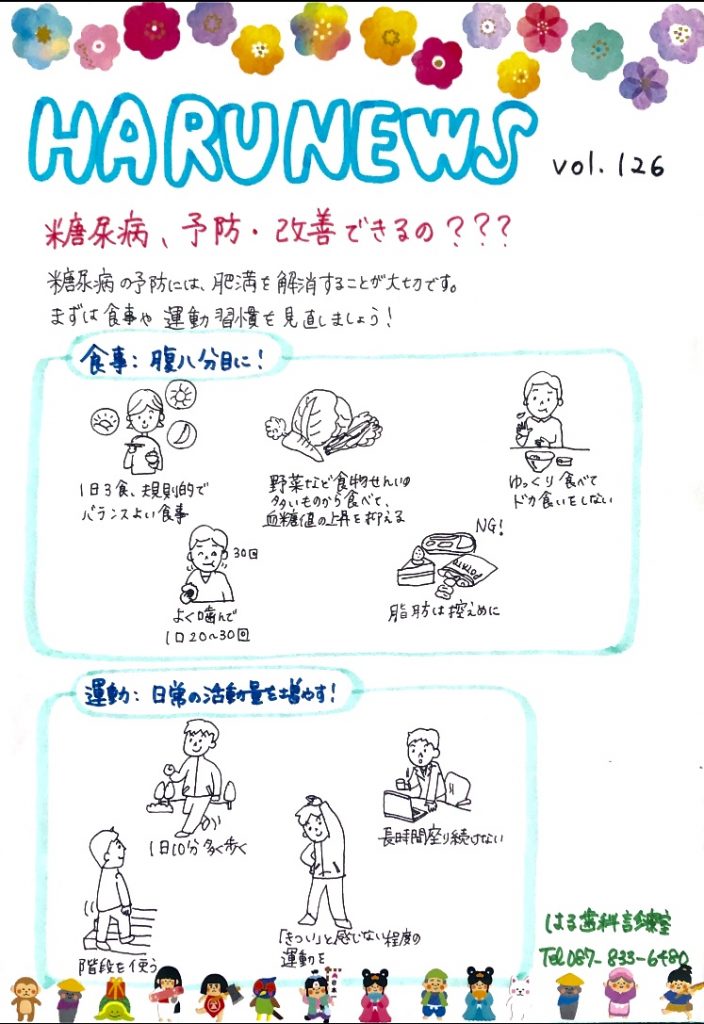 HARUNEWS vol.126
糖尿病、予防・改善できるの???
糖尿病の予防には、肥満を解消することが大切です。
まずは食事や運動習慣を見直しましょう!
食事:腹八分目に!
1日3食、規則的で
バランスよい食事
野菜など食物せんいの
多いものから食べて、
血糖値の上昇を抑える
ゆっくり食べて
ドカ食いをしない
30回
よく噛んで
1口20~30回
NG!
POTATO
脂肪は控えめに
運動:日常の活動量を増やす!
1日10分多く歩く
長時間座り続けない
階段を使う
「きつい」と感じない程度の
運動を
はる歯科診療室
Tel 087-833-6480